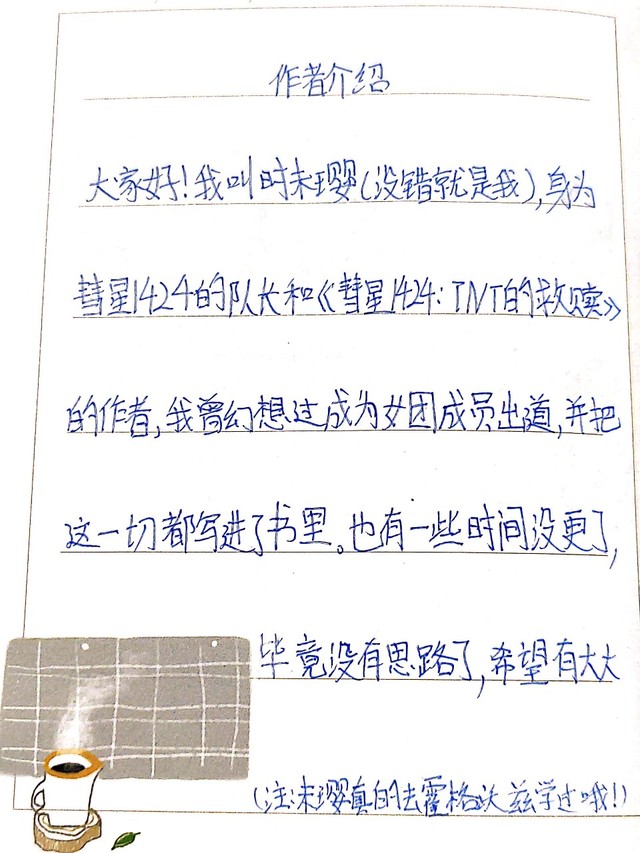 作者介绍
大家好！我叫时未璎(没错就是我),身为
彗星1424的队长和《彗星1424:TNT的救赎》
的作者,我曾幻想过成为女团成员出道,并把
这一切都写进了书里。也有一些时间没更了,
毕竟没有思路了,希望有大大
(注:未璎真的去霍格沃兹学过哦!)